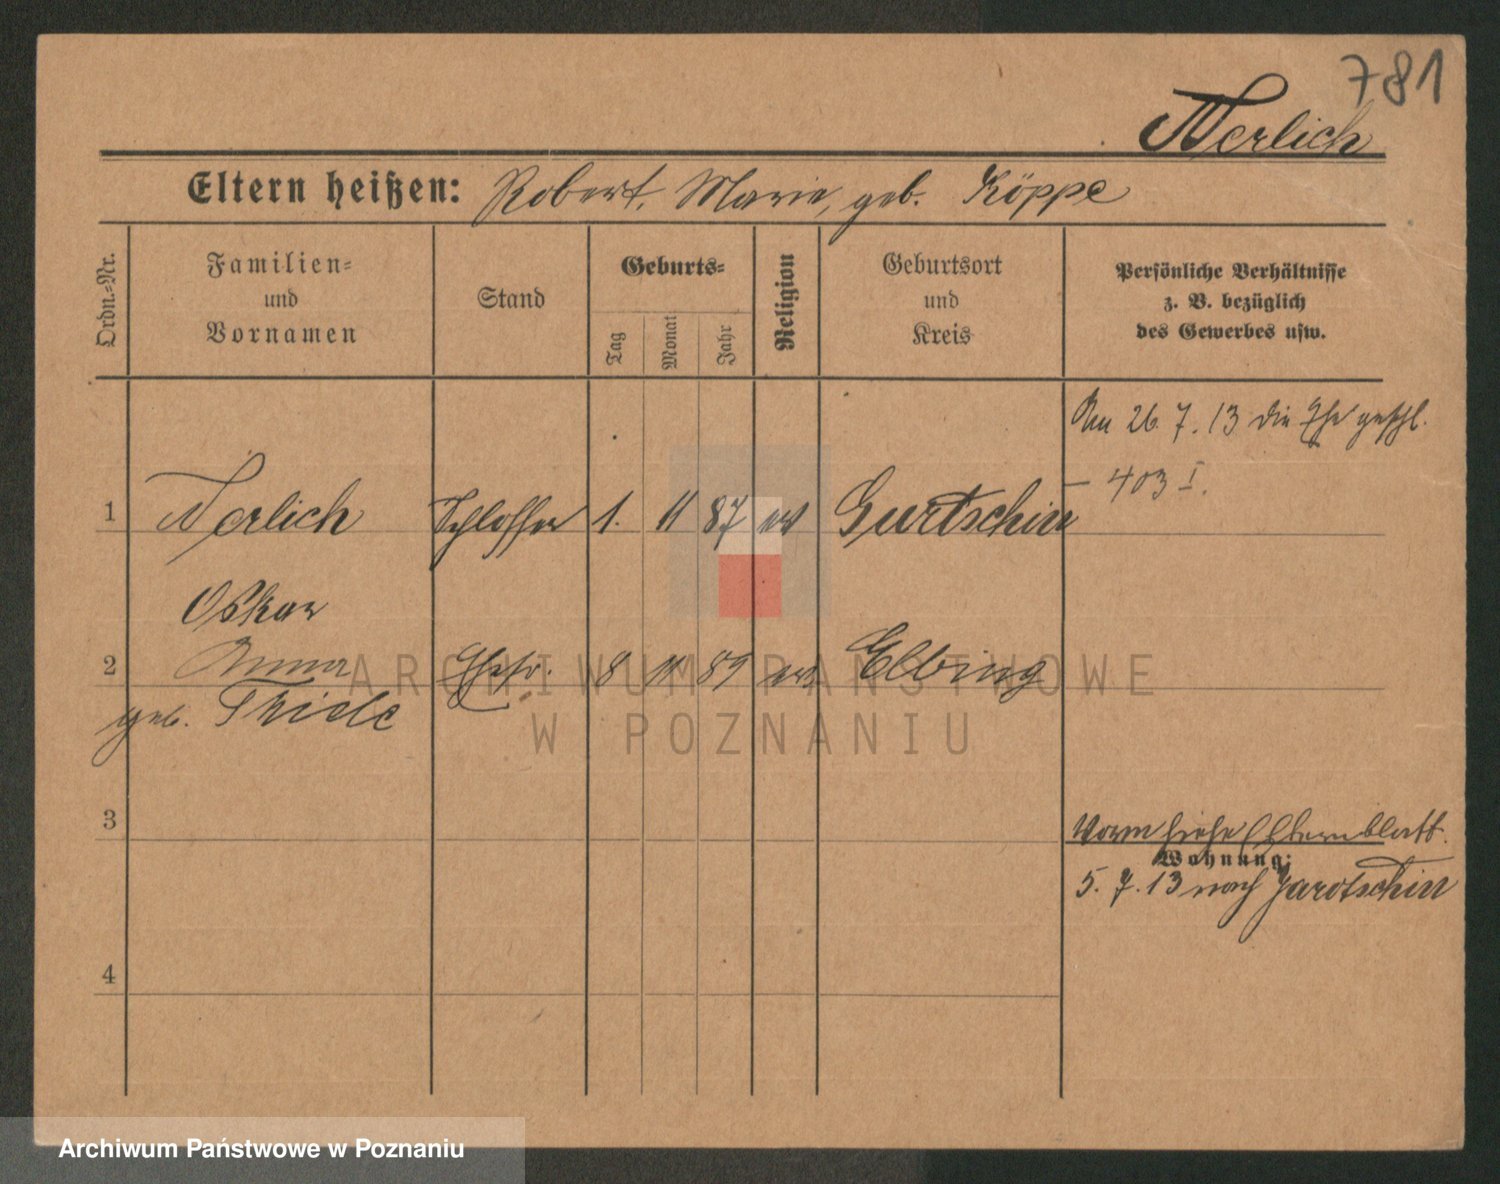 781
Nerlich
Eltern heißen: Robert, Marie, geb. Köppe
Ordn.-Nr.
Familien-
und
Vornamen
Stand
Geburts-
Tag
Monat
Jahr
Religion
Geburtsort
und
Kreis
Persönliche Verhältnisse
z. B. bezüglich
des Gewerbes usw.
Am 26.7.13 die Ehe geschl.
– 403 I.
1 Nerlich Schlosser 1. 11 87 ev Gurtschin
Oskar
2 Anna Ehefr. 8 11 89 ev Elbing
geb. Thiele
3
Vorm siehe Elternblatt.
Wohnung:
5.7.13 nach Jarotschin
4
ARCHIWUM PAŃSTWOWE
W POZNANIU
Archiwum Państwowe w Poznaniu